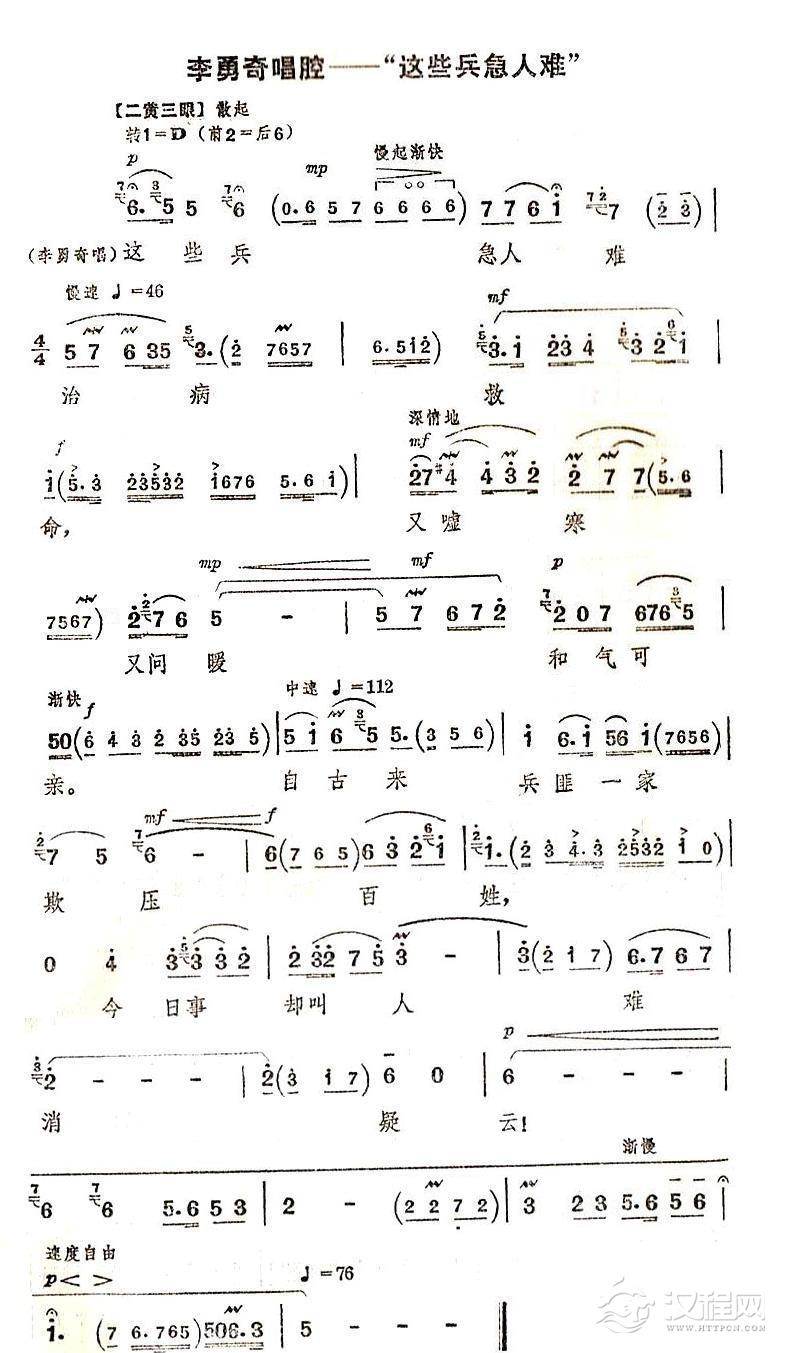 李勇奇唱腔——“这些兵急人难”
【二黄三眼】散起
转1=D（前2=后6）
慢起渐快
p mp
6. 5 5 6 (0.6 5 7 6 6 6 6) 7 7 6 i 7 (2 3)
(李勇奇唱)这 些 兵 急人 难
慢速 ♩=46
mf
4/4 5 7 6 35 3.(2 7657 | 6.512) 3.i 23 4 3 2 i |
治 病 救
深情地
f mf
i(5.3 23532 i676 5.6 i) | 27 #4 4 3 2 2 7 7(5.6 |
命， 又嘘 寒
mp mf p
7567) 2 7 6 5 - | 5 7 6 7 2 2 0 7 676 5 |
又问 暖 和 气 可
渐快 中速 ♩=112
f
50(6 4 3 2 35 23 5) | 5 i 6 5 5.(3 5 6 | i 6.i 56 i(7656) |
亲。 自 古 来 兵 匪 一 家
mf f
7 5 6 - | 6(7 65) 63 2 i | i.(2 3 4.3 2532 i 0) |
欺 压 百 姓，
0 4 3 3 3 2 | 2 32 7 5 3 - | 3(2 i 7) 6.7 6 7 |
今 日事 却叫 人 难
p
2 - - - | 2(3 i 7) 6 0 | 6 - - - |
消 疑 云!
渐慢
6 6 5.6 5 3 | 2 - - (2 2 7 2) | 3 2 3 5.6 5 6 |
速度自由
p < > ♩=76
i. (7 6.765) 506.3 | 5 - -
汉程网
WWW.HTTPCN.COM